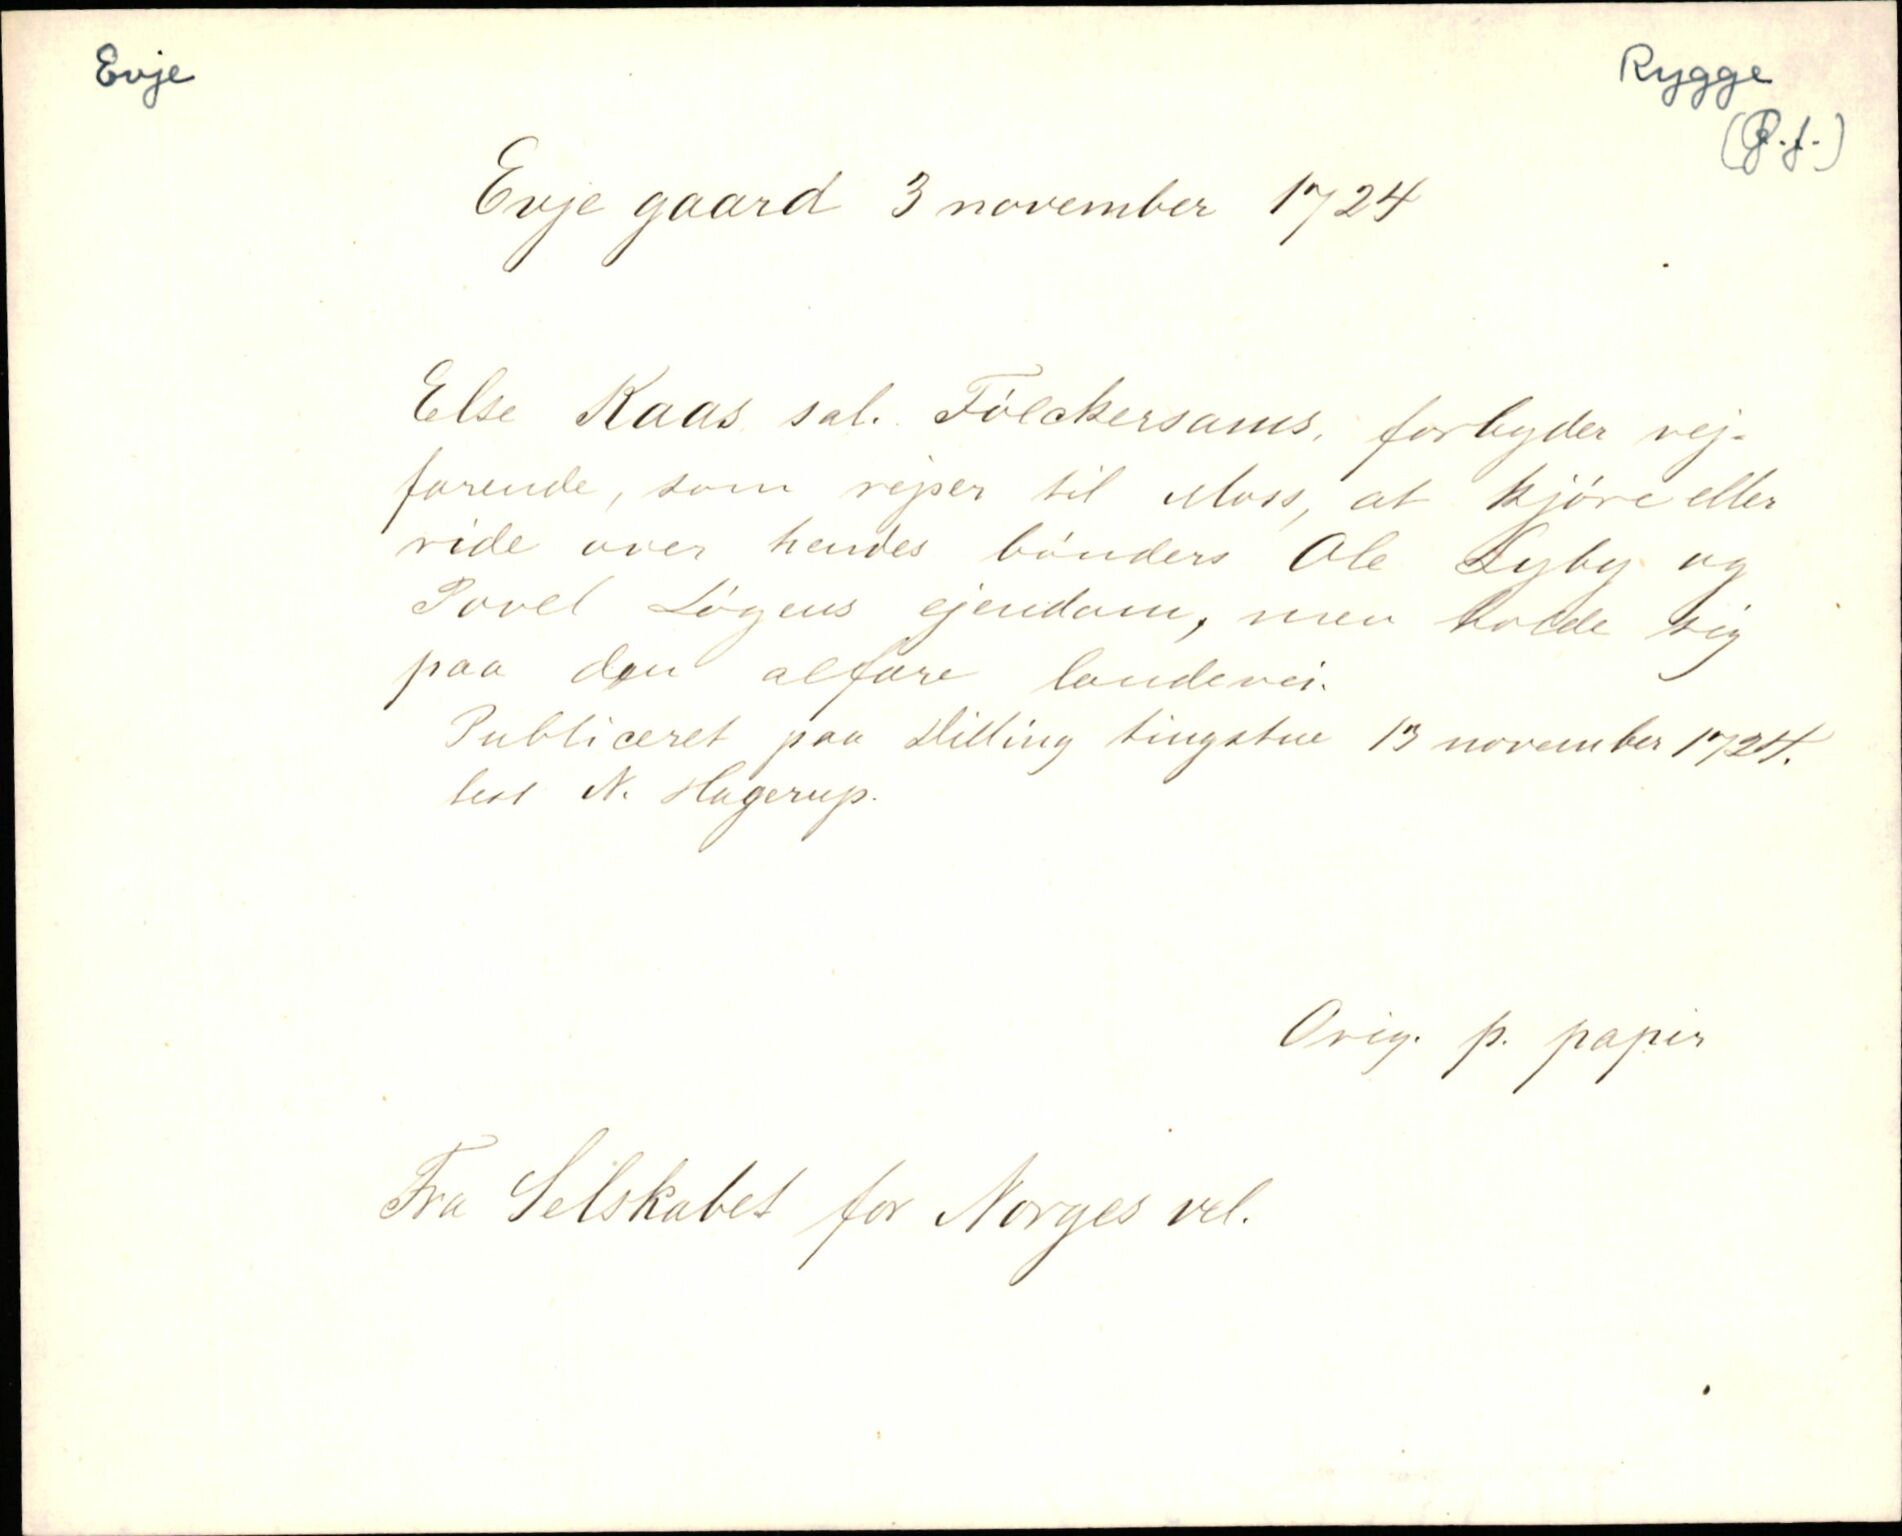 Evje
Rygge
(Ø.f.)
Evje gaard 3 november 1724
Else Kaas sal. Fölckersams, forbyder vej-
farende, som rejser til Moss, at kjöre eller
ride over hendes bönders Ole Lyby og
Povel Lögens ejendom, men holde sig
paa den alfare landevei.
Publiceret paa Dilling tingstue 13 november 1724.
test N. Hagerup.
Orig. p. papir
Fra Selskabet for Norges vel.